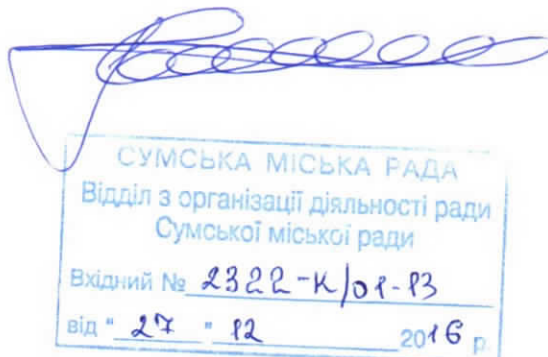 СУМСЬКА МІСЬКА РАДА
Відділ з організації діяльності ради
Сумської міської ради
Вхідний № 2322-К/01-13
від " 27 " 12 2016 р.